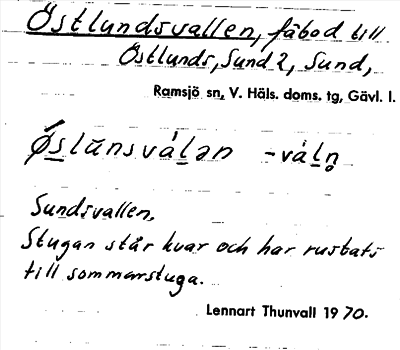 Östlundsvallen, fäbod till
Östlunds, Sund 2, Sund,
Ramsjö sn, V. Häls. doms. tg, Gävl. l.
Ǿslu̇nsvȧlǝn -vȧln̥
Sundsvallen.
Stugan står kvar och har rustats
till sommarstuga.
Lennart Thunvall 1970.